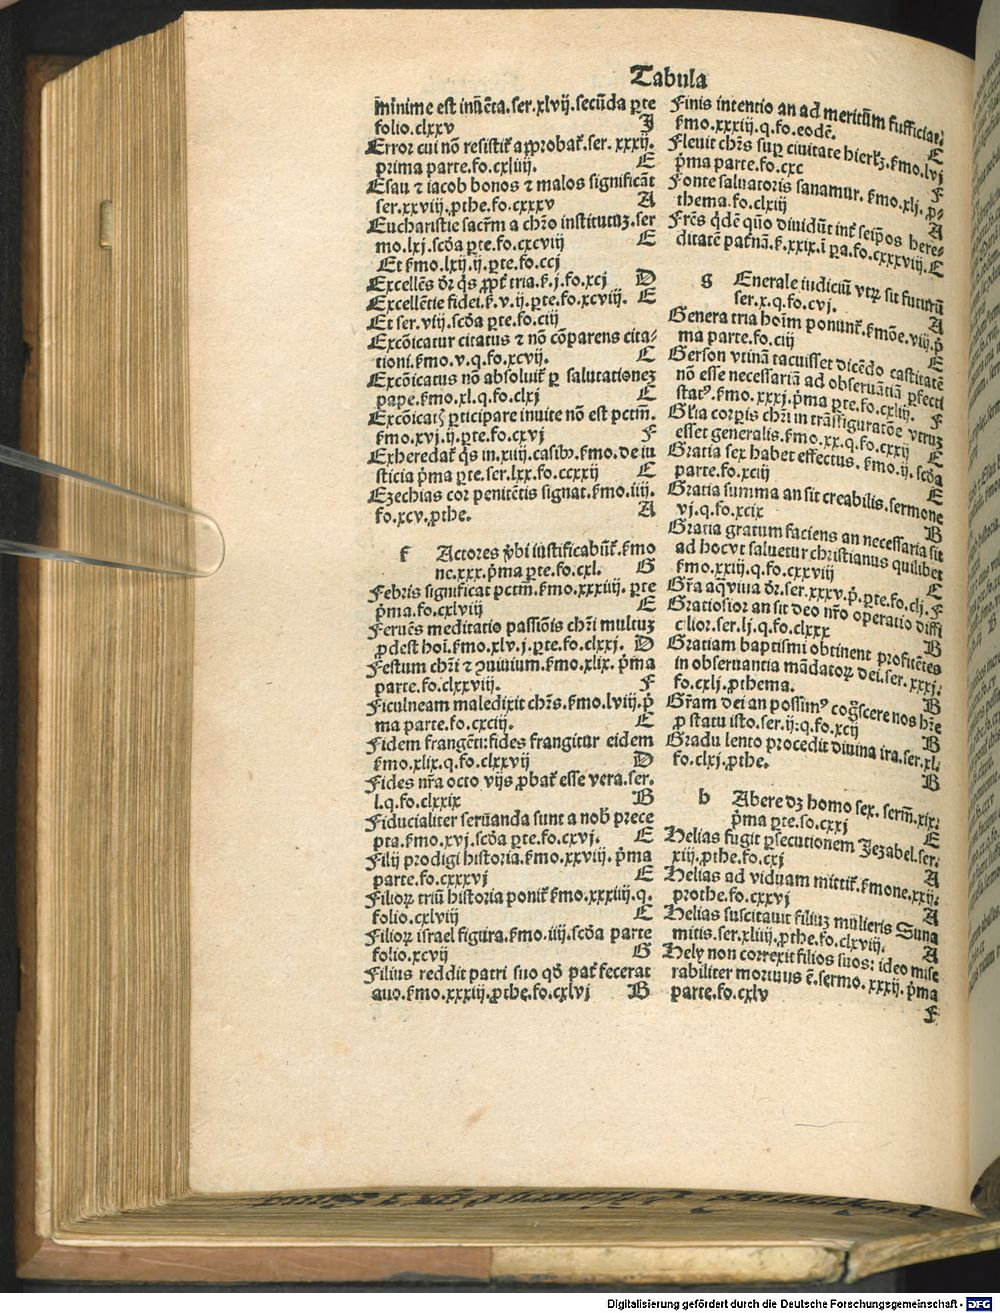 Tabula
minime est inuẽta. ser. xlvij. secũda ꝑte
folio. clxxv J
Error cui nõ resistit̃ approbat̃. ser. xxxij.
prima parte. fo. cxliiij. E
Esau ⁊ iacob bonos ⁊ malos significãt
ser. xxviij. ꝓthe. fo. cxxxv A
Eucharistie sacr̃m a chr̃o institutuȝ. ser
mo. lxj. scḋa ꝑte. fo. cxcviij E
Et s̃mo. lxij. ij. ꝑte. fo. ccj
Excellẽs dr̃ q̇s ꝓpt̃ tria. s̃. j. fo. xcj D
Excellẽtie fidei. s̃. v. ij. ꝑte. fo. xcviij. E
Et ser. viij. scḋa ꝑte. fo. ciij
Excõicatur citatus ⁊ nõ cõparens cita⸗
tioni. s̃mo. v. q. fo. xcvij. C
Excõicatus nõ absoluit̃ ꝑ salutationeȝ
pape. s̃mo. xl. q. fo. clxj E
Excõicatꝭ ꝑticipare inuite nõ est pctm̃.
s̃mo. xvj. ij. ꝑte. fo. cxvj F
Exheredat̃ q̇s in. xiiij. casibꝰ. s̃mo. de iu
sticia p̃ma ꝑte. ser. lxx. fo. ccxxij C
Ezechias cor penitẽtis signat. s̃mo. iiij.
fo. xcv. ꝓthe. A
f Actores v̾bi iustificabũt̃. s̃mo
nc. xxx. p̃ma ꝑte. fo. cxl. G
Febris significat pctm̃. s̃mo. xxxiiij. ꝑte
p̃ma. fo. cxlviij E
Feruẽs meditatio passiõis chr̃i multuȝ
ꝓdest hoĩ. s̃mo. xlv. j. ꝑte. fo. clxxj. D
Festum chr̃i ⁊ ꝯuiuium. s̃mo. xlix. p̃ma
parte. fo. clxxviij. F
Ficulneam maledixit chr̃s. s̃mo. lviij. p̃
ma parte. fo. cxciij. E
Fidem frangẽti: fides frangitur eidem
s̃mo. xlix. q. fo. clxxvij D
Fides nr̃a octo vijs ꝓbat̃ esse vera. ser.
l. q. fo. clxxix B
Fiducialiter seruanda sunt a nob̃ prece
pta. s̃mo. xvj. scḋa ꝑte. fo. cxvj. E
Filij prodigi historia. s̃mo. xxviij. p̃ma
parte. fo. cxxxvj E
Filioꝝ triũ historia ponit̃ s̃mo. xxxiiij. q.
folio. cxlviij E
Filioꝝ israel figura. s̃mo. iiij. scḋa parte
folio. xcvij G
Filius reddit patri suo qḋ pat̃ fecerat
auo. s̃mo. xxxiij. ꝓthe. fo. cxlvj B
Finis intentio an ad meritũm sufficiat.
s̃mo. xxxiij. q. fo. eodẽ. E
Fleuit chr̃s suꝑ ciuitate hierłȝ. s̃mo. lvj
p̃ma parte. fo. cxc F
Fonte saluatoris sanamur. s̃mo. xlj. ꝓ⸗
thema. fo. clxiij A
Fr̃es q̇dẽ quõ diuidũt int̃ seip̃os here⸗
ditatẽ pat̃nã. s̃. xxix. ĩ p̃a. fo. cxxxviij. E
g Enerale iudiciũ vtꝝ sit futurũ
ser. x. q. fo. cvj. A
Genera tria hoĩm ponunt̃. s̃mõe. viij. p̃
ma parte. fo. ciij E
Gerson vtinã tacuisset dicẽdo castitatẽ
nõ esse necessariã ad obseruãtiã ꝑfecti
statꝰ. s̃mo. xxxj. p̃ma ꝑte. fo. cxliij. F
Gl̃ia corꝑis chr̃i in trãsfiguratõe vtruȝ
esset generalis. s̃mo. xx. q. fo. cxxij E
Gratia sex habet effectus. s̃mo. ij. scḋa
parte. fo. xciij E
Gratia summa an sit creabilis. sermone
vj. q. fo. xcix B
Gratia gratum faciens an necessaria sit
ad hoc vt saluetur christianus quilibet
s̃mo. xxiij. q. fo. cxxviij C
Gr̃a aq̃ viua dr̃. ser. xxxv. p̃. ꝑte. fo. clj. F
Gratiosior an sit deo nr̃o operatio diffi
cilior. ser. lj. q. fo. clxxx B
Gratiam baptismi obtinent profitẽtes
in obseruantia mãdatoꝝ dei. ser. xxxj.
fo. cxlj. ꝓthema. B
Gr̃am dei an possimꝰ cogsc̃ere nos hr̃e
ꝓ statu isto. ser. ij: q. fo. xcij B
Gradu lento procedit diuina ira. ser. xl.
fo. clxj. ꝓthe. B
h Abere dȝ homo sex. serm̃. xix.
p̃ma ꝑte. fo. cxxj E
Helias fugit ꝑsecutionem Jezabel. ser.
xiij. ꝓthe. fo. cxj A
Helias ad viduam mittit̃. s̃mone. xxij.
prothe. fo. cxxvj A
Helias suscitauit filiuȝ mulieris Suna
mitis. ser. xliiij. ꝓthe. fo. clxviij. A
Hely non correxit filios suos: ideo mise
rabiliter mortuus ẽ. sermo. xxxij. p̃ma
parte. fo. cxlv F
Digitalisierung gefördert durch die Deutsche Forschungsgemeinschaft - DFG